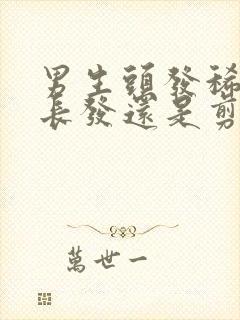 男生頭發稀
長發還是剪
萬世一